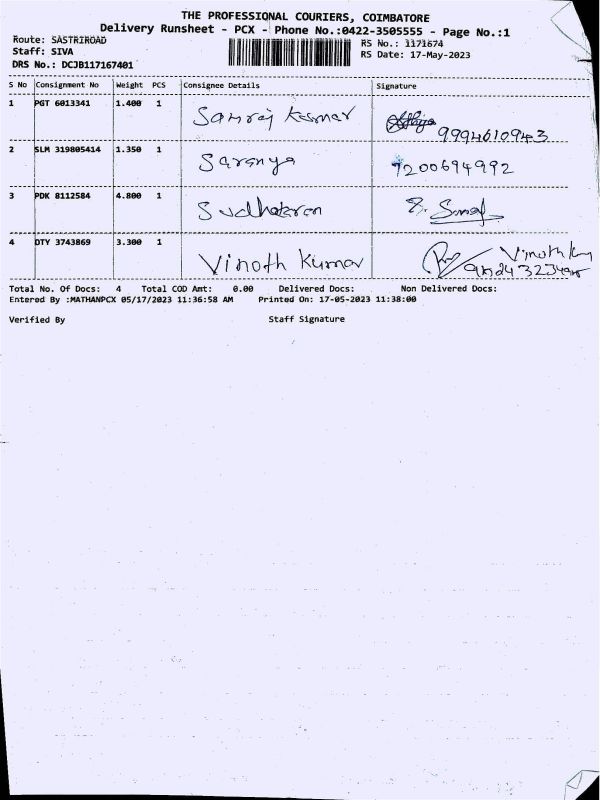 THE PROFESSIONAL COURIERS, COIMBATORE
Delivery Runsheet - PCX - Phone No.:0422-3505555 - Page No.:1
Route: SASTRIROAD RS No.: 1171674
Staff: SIVA RS Date: 17-May-2023
DRS No.: DCJB117167401
S No Consignment No Weight PCS Consignee Details Signature
1 PGT 6013341 1.400 1 Samraj Kumar 9994610943
2 SLM 319805414 1.350 1 Saranya 7200694992
3 PDK 8112584 4.800 1 Sudhakaran
4 DTY 3743869 3.300 1 Vinoth Kumar
Total No. Of Docs: 4 Total COD Amt: 0.00 Delivered Docs: Non Delivered Docs:
Entered By :MATHANPCX 05/17/2023 11:36:58 AM Printed On: 17-05-2023 11:38:00
Verified By Staff Signature